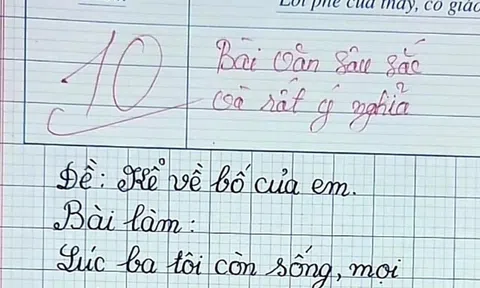 Lời phê của thầy, cô giáo
10
Bài văn sâu sắc
và rất ý nghĩa
Đề: Kể về bố của em.
Bài làm:
Lúc ba tôi còn sống, mọi